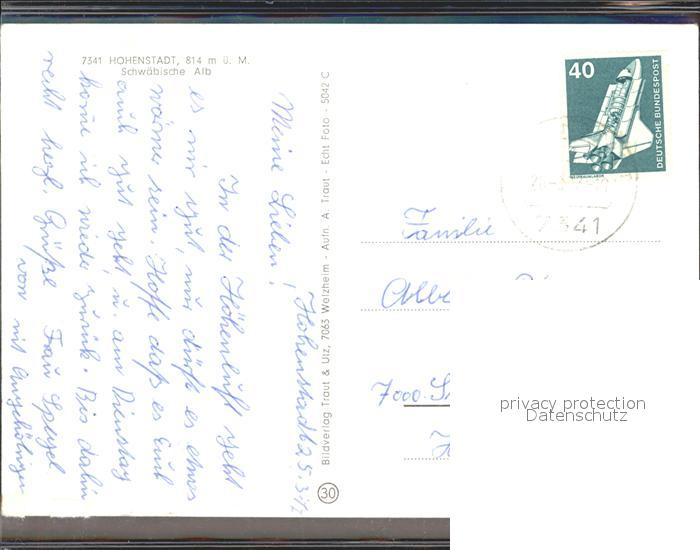 7341 HOHENSTADT, 814 m ü. M.
Schwäbische Alb
Hohenstadt 25.3.
Meine Lieben!
In der Höhenluft geht
es mir gut, nur dürft es etwas
wärmer sein. Hoffe daß es Euch
auch gut geht, u. am Dienstag
komme ich wieder zurück. Bis dahin
recht herzl. Grüße Frau
von mit
Bildverlag Traut & Utz, 7063 Welzheim - Aufn. A. Traut - Echt Foto - 5042 C
30
40
DEUTSCHE BUNDESPOST
7341
Familie
Albe
7000 S
privacy protection
Datenschutz